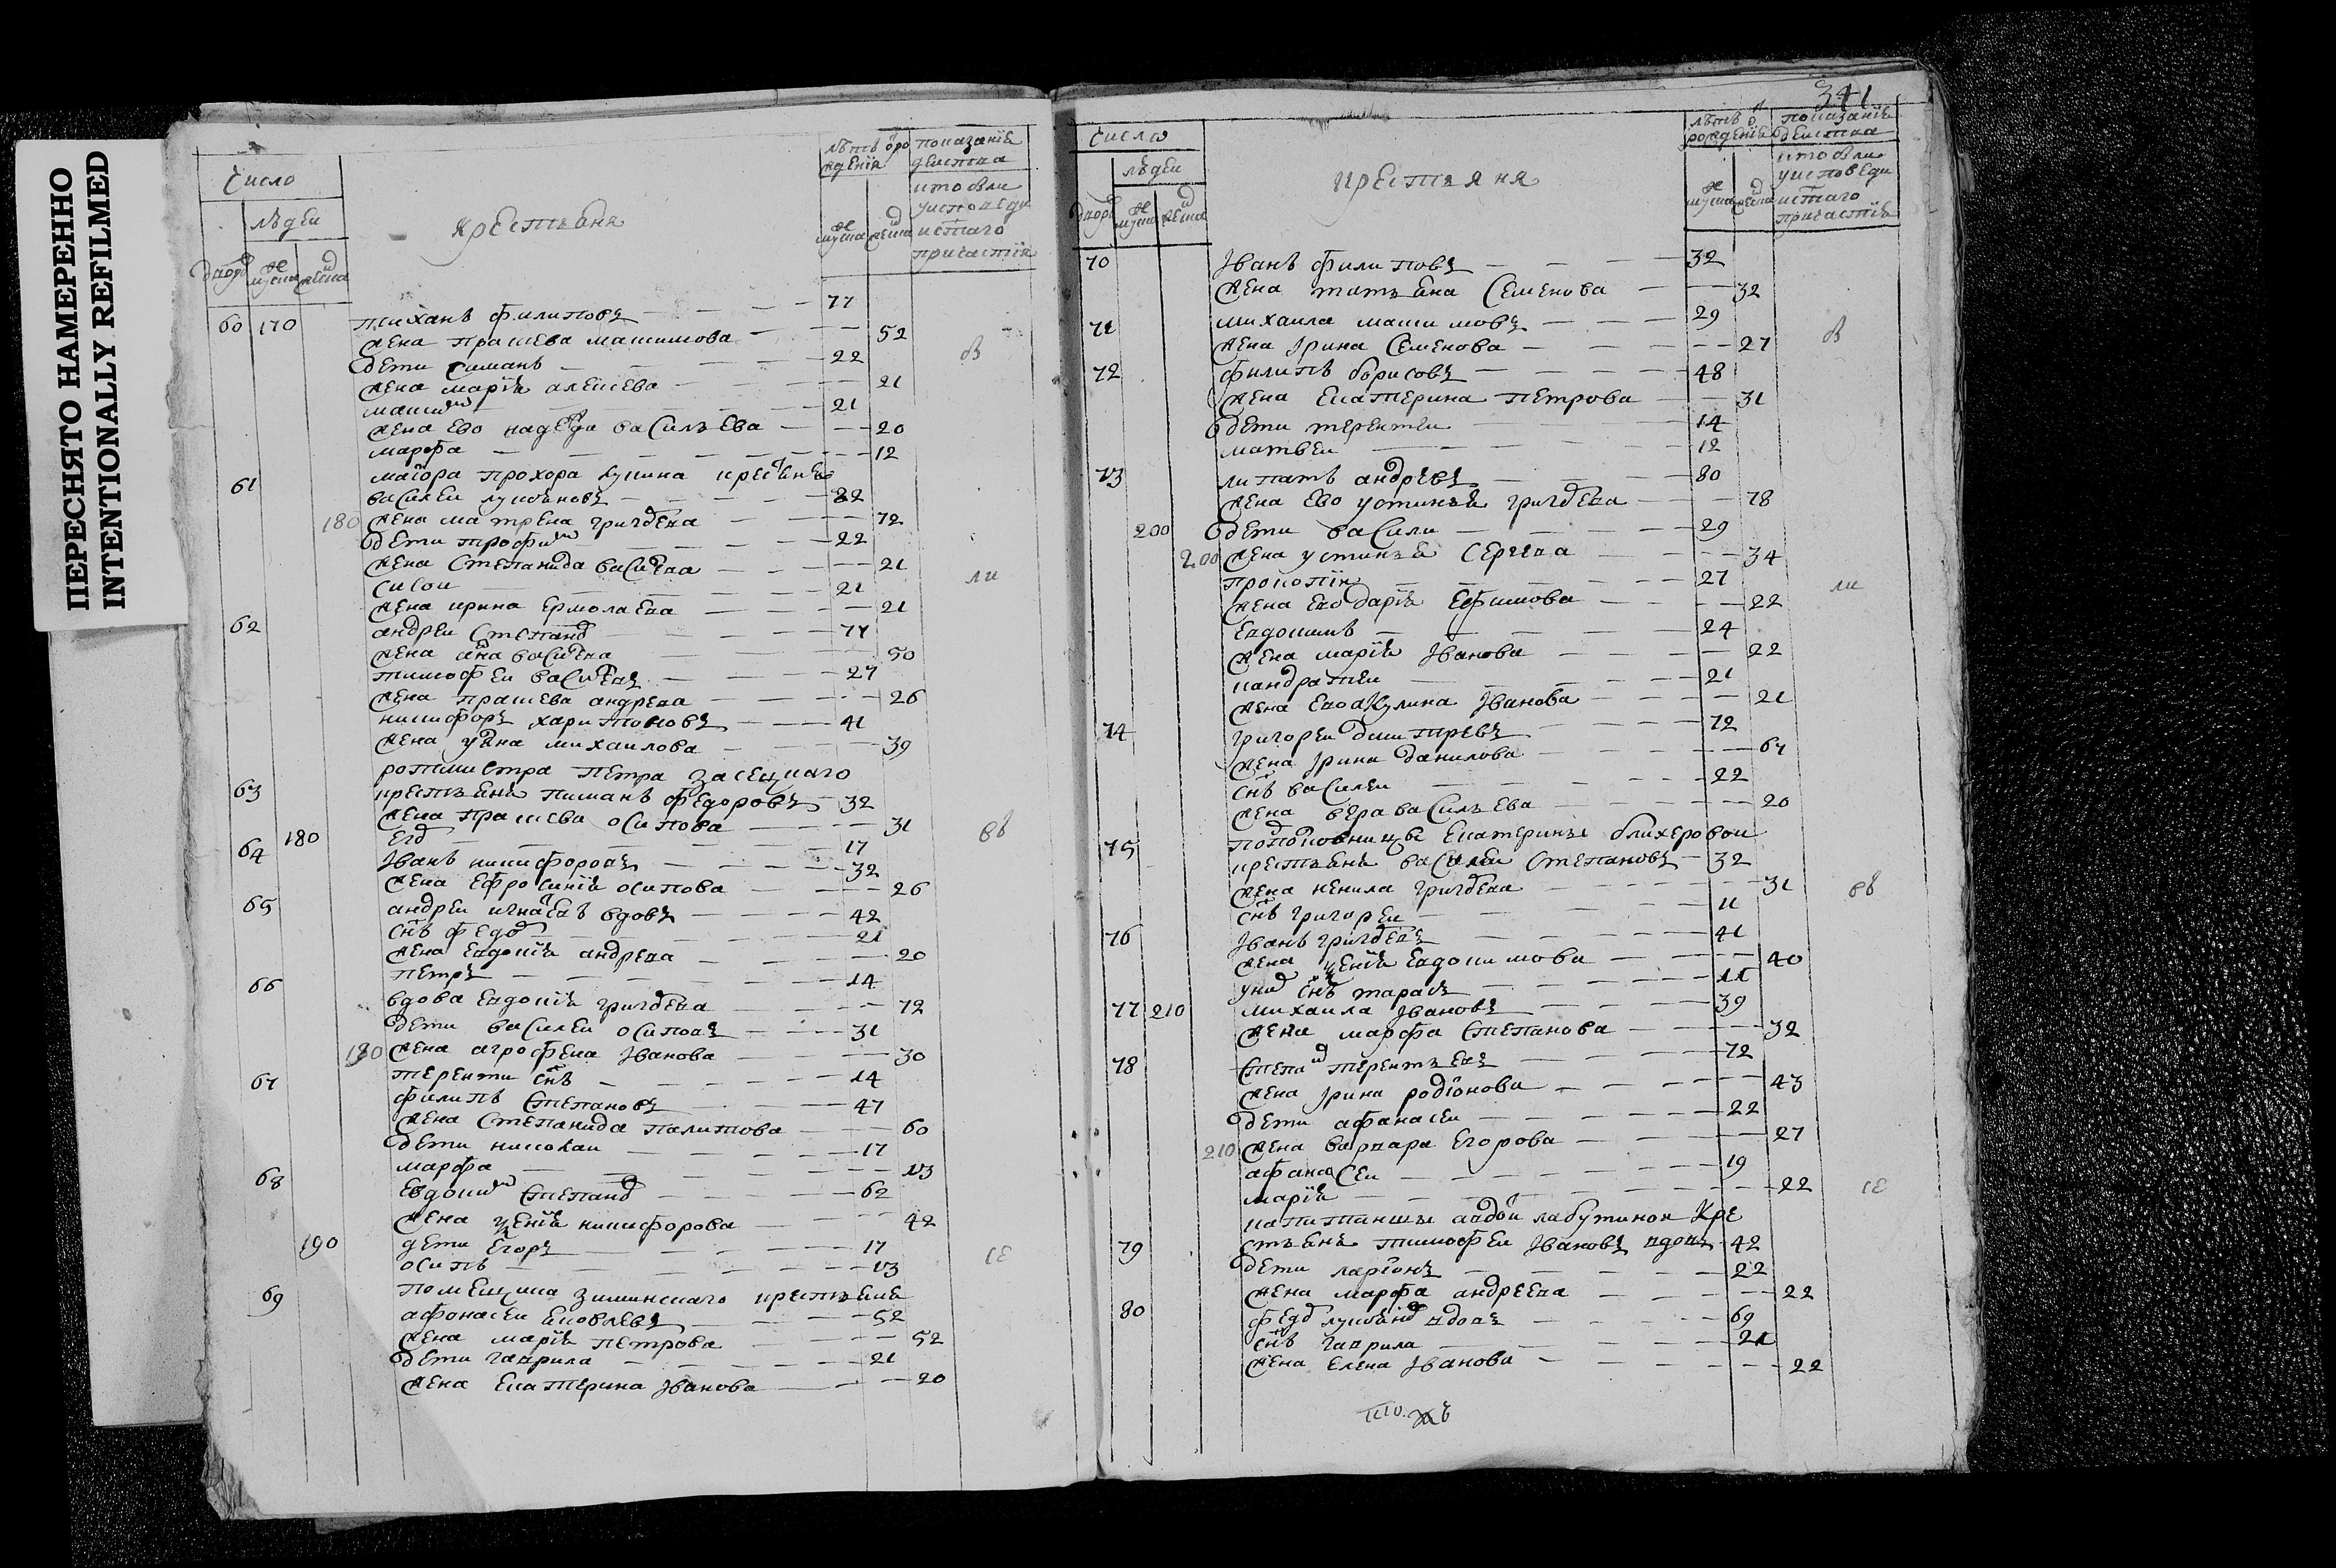 ПЕРЕСНЯТО НАМЕРЕННО
INTENTIONALLY REFILMED
число
людеи
дворо муска женска
крестьяня
лѣтъ оро
жденія
муска женска
показаніе
деиства
кто были
у исповеди
и стаго
причастія
60 170 тиханъ филиповъ 77
жена прасковя максимова 52
дети симанъ 22
жена марія алексева 21
максим 21
жена ево надежда васильева 20
марфа 12
61 маіора прохора кушна крестьяня
василеи лукьяновъ 82
180 жена матрена григорева 72
дети трофим 22
жена степанида васильева 21
сисои 21
жена ирина ермолаева 21
62 андреи степанов 77
жена анна васильева 50
тимофеи васильевъ 27
жена прасковя андрева 26
никифоръ харитоновъ 41
жена ульяна михаилова 39
ротмистра петра засецкаго
63 крестьяня пиманъ федоровъ 32
жена прасковя осипова 31
180 егор 17
64 Іванъ никифоровъ 32
жена ефросинія осипова 26
65 андреи игнатевъ вдовъ 42
снъ федор 21
жена евдокія андрева 20
петръ 14
66 вдова евдокія григорева 72
дети василеи осиповъ 31
190 жена агрофена Іванова 30
терентеи снъ 14
67 филипъ степановъ 47
жена степанида палипова 60
дети николаи 17
марфа 13
68 евдоким степанов 62
жена ксенія никифорова 42
190 дети егоръ 17
осипъ 13
69 помещика зиминскаго крестьяне
афонасеи яковлевъ 52
жена марія петрова 52
дети гаврила 21
жена екатерина Іванова 20
въ
ли
въ
се
341
число
людеи
дворо муска женска
крестьяня
лѣтъ о
рождения
муска женска
показаніе
деиства
кто были
у исповеди
и стаго
причастія
70 Іванъ филиповъ 32
жена татьяна семенова 32
71 михаила максимовъ 29
жена Ірина семенова 27
72 филипъ борисовъ 48
жена екатерина петрова 31
дети терентеи 14
матвеи 12
73 липатъ андревъ 80
жена ево устинья григорева 78
200 дети васили 29
200 жена устинья сергева 34
прокопіи 27
жена ево дарія ефимова 22
евдокимъ 24
жена марія Іванова 22
кандратеи 21
жена ево акулина Іванова 21
74 григореи дмитревъ 72
жена Ірина данилова 67
снъ василеи 22
жена вера васильева 20
подполковницы екатерины блихеровои
75 крестьяня василеи степановъ 32
жена ненила григорева 31
снъ григореи 11
76 Іванъ григоревъ 41
жена ксенія евдокимова 40
у них снъ тарасъ 11
77 210 михаила Івановъ 39
жена марфа степанова 32
78 степан терентьевъ 72
жена Ірина родіонова 43
дети афанасеи 22
210 жена варвара егорова 27
афанасеи 19
марія 22
капитанши авдоти лабутинои кре
79 стьяня тимофеи Івановъ вдовъ 42
дети ларіонъ 22
жена марфа андреева 22
80 федор лукьянов вдовъ 69
снъ гаврила 21
жена елена Іванова 22
въ
ли
въ
се